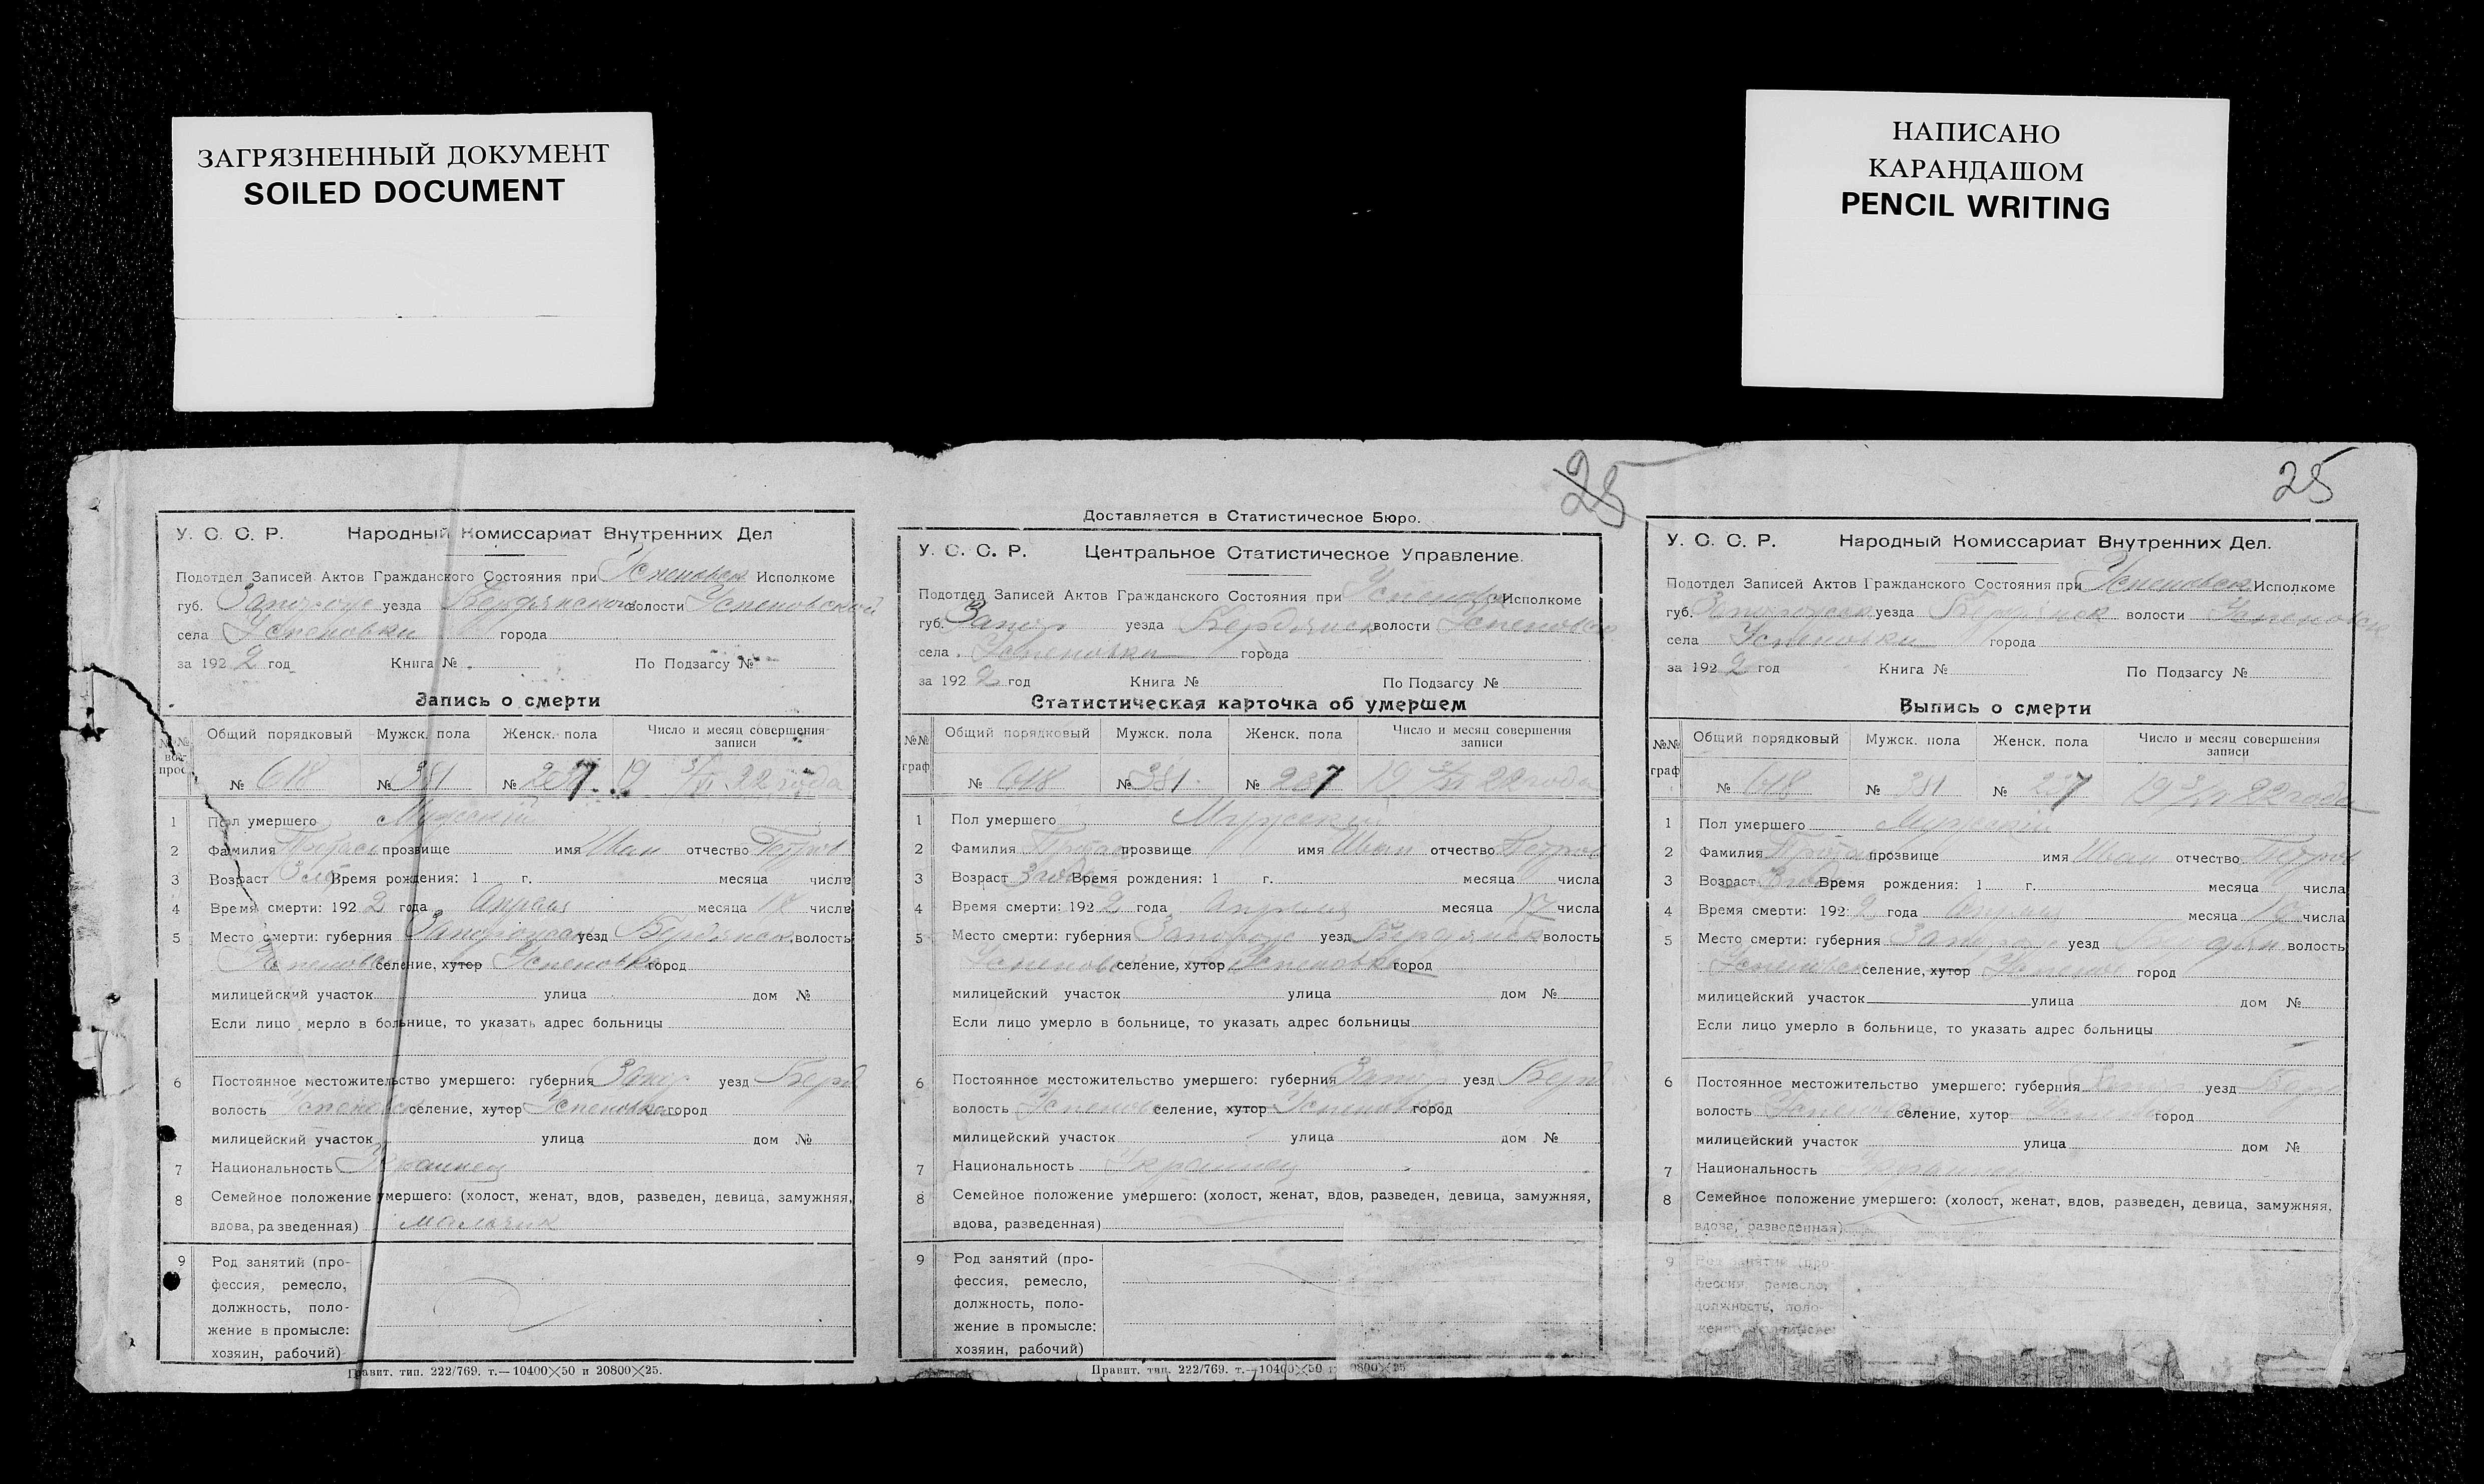 ЗАГРЯЗНЕННЫЙ ДОКУМЕНТ
SOILED DOCUMENT
НАПИСАНО
КАРАНДАШОМ
PENCIL WRITING
25
25
У. С. С. Р. Народный Комиссариат Внутренних Дел
Подотдел Записей Актов Гражданского Состояния при Успеновск Исполкоме
губ. уезда Бердянского волости Успеновской
села Успеновки города
за 1922 год Книга № По Подзагсу №
Запись о смерти
№№ вопрос Общий порядковый Мужск. пола Женск. пола Число и месяц совершения записи
№ 618 № 381 № 237 19 3/VI 22 года
1 Пол умершего Мужский
2 Фамилия прозвище имя Иван отчество Петров
3 Возраст Время рождения: 1 г. месяца числа
4 Время смерти: 1922 года Апраля месяца числа
5 Место смерти: губерния Запорожск уезд Бердянск волость
Успеновск селение, хутор Успеновка город
милицейский участок улица дом №
Если лицо мерло в больнице, то указать адрес больницы
6 Постоянное местожительство умершего: губерния Запор уезд Берд
волость Успеновск селение, хутор Успеновка город
милицейский участок улица дом №
7 Национальность Украинец
8 Семейное положение умершего: (холост, женат, вдов, разведен, девица, замужняя,
вдова, разведенная) мальчик
9 Род занятий (про-
фессия, ремесло,
должность, поло-
жение в промысле:
хозяин, рабочий)
Правит. тип. 222/769. т.—10400×50 и 20800×25.
Доставляется в Статистическое Бюро.
У. С. С. Р. Центральное Статистическое Управление.
Подотдел Записей Актов Гражданского Состояния при Успеновск Исполкоме
губ. Запор уезда Бердянск волости Успеновск
села Успеновки города
за 1922 год Книга № По Подзагсу №
Статистическая карточка об умершем
№№ граф Общий порядковый Мужск. пола Женск. пола Число и месяц совершения записи
№ 618 № 381 № 237 19 3/VI 22 года
1 Пол умершего Мужский
2 Фамилия прозвище имя Иван отчество Петров
3 Возраст 3 года Время рождения: 1 г. месяца числа
4 Время смерти: 1922 года Апраля месяца 17 числа
5 Место смерти: губерния Запорож уезд Бердянск волость
Успеновск селение, хутор Успеновка город
милицейский участок улица дом №
Если лицо умерло в больнице, то указать адрес больницы
6 Постоянное местожительство умершего: губерния Запор уезд Берд
волость Успеновск селение, хутор Успеновка город
милицейский участок улица дом №
7 Национальность Украинец
8 Семейное положение умершего: (холост, женат, вдов, разведен, девица, замужняя,
вдова, разведенная)
9 Род занятий (про-
фессия, ремесло,
должность, поло-
жение в промысле:
хозяин, рабочий)
Правит. тип. 222/769. т.—10400×50 и 20800×25
У. С. С. Р. Народный Комиссариат Внутренних Дел.
Подотдел Записей Актов Гражданского Состояния при Успеновск Исполкоме
губ. Запорожск уезда Бердянск волости Успеновск
села Успеновки города
за 1922 год Книга № По Подзагсу №
Выпись о смерти
№№ граф Общий порядковый Мужск. пола Женск. пола Число и месяц совершения записи
№ 618 № 381 № 237 19 3/VI 22 года
1 Пол умершего Мужский
2 Фамилия прозвище имя Иван отчество Петров
3 Возраст 3 года Время рождения: 1 г. месяца числа
4 Время смерти: 1922 года месяца числа
5 Место смерти: губерния Запорож уезд волость
Успеновск селение, хутор Успенов город
милицейский участок улица дом №
Если лицо умерло в больнице, то указать адрес больницы
6 Постоянное местожительство умершего: губерния уезд Берд
волость Успеновск селение, хутор город
милицейский участок улица дом №
7 Национальность Украинец
8 Семейное положение умершего: (холост, женат, вдов, разведен, девица, замужняя,
вдова, разведенная)
9 Род занятий (про-
фессия, ремесло,
должность, поло-
жение в промысле: